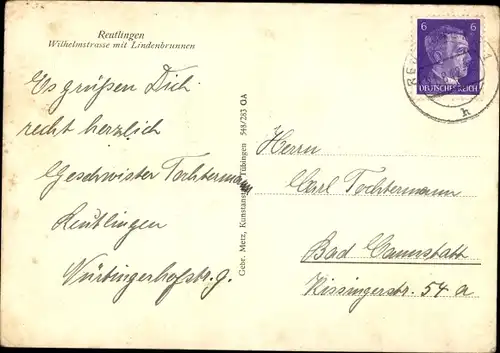 Reutlingen
Wilhelmstrasse mit Lindenbrunnen
Es grüßen Dich
recht herzlich
Geschwister Tochtermann
Reutlingen
Nürtingerhofstr. 9.
Gebr. Metz, Kunstanstalt, Tübingen 548/283 GA
6 6
DEUTSCHES REICH
h
Herrn
Carl Tochtermann
Bad Cannstatt
Kissingerstr. 54 a